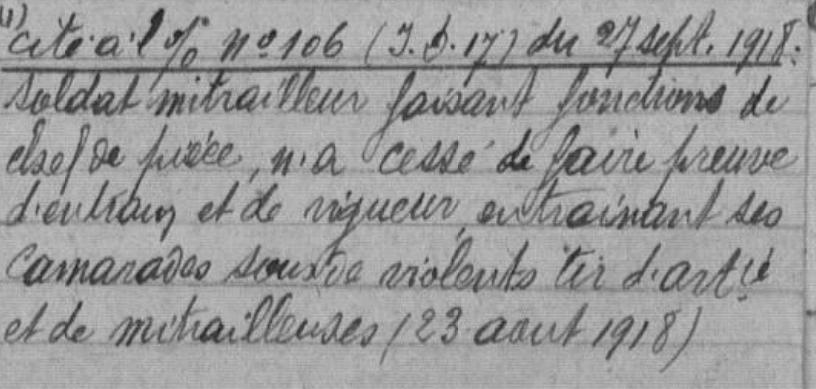 (1)
cité à l'o/o nº 106 (I.D. 17) du 27 sept. 1918.
soldat mitrailleur faisant fonctions de
chef de pièce, n'a cessé de faire preuve
d'entrain et de vigueur, entrainant ses
camarades sous de violents tir d'artie
et de mitrailleuses (23 aout 1918)